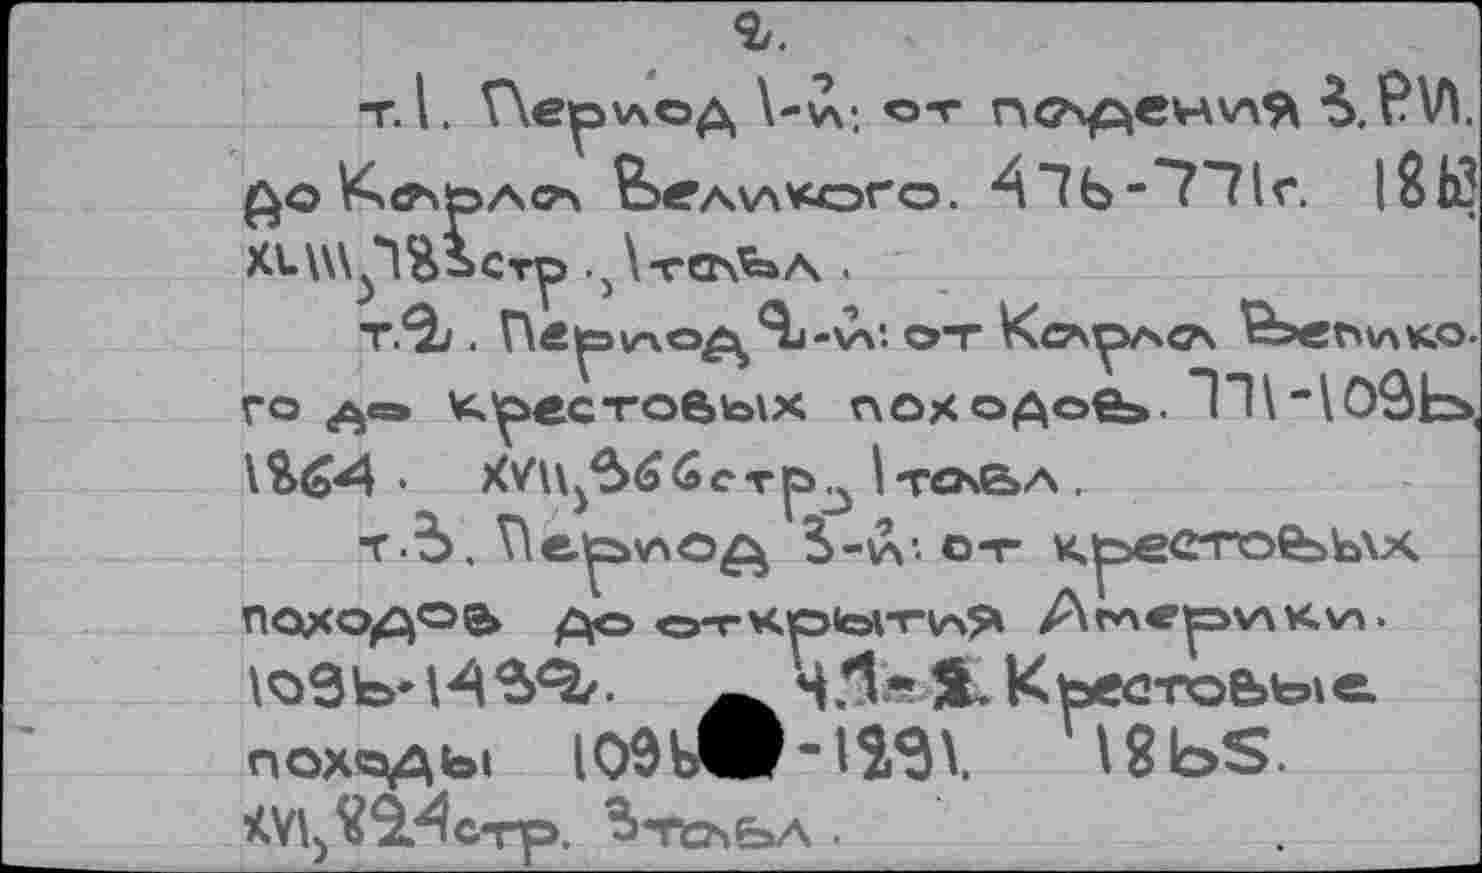 2.
т.1. Период 1-й: от падения З.Р.И.
до Карла Великого. 476-771г. 1863
XLIII,783стр.,1табл.
т.2. Период 2-й: от Карла Велико-
го до крестовых походов. 771-1096,
1864. XVII,366стр., 1табл.
т.3. Период 3-й: от крестовых
походов до открытия Америки.
1096-1492. Ч.1-я. Крестовые
походы 1096-1291. 1865.
XVI,824стр. 3табл.